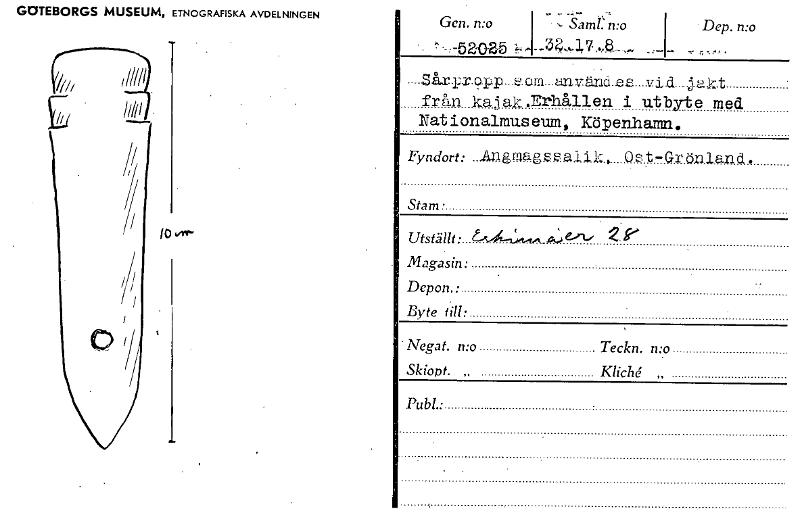 GÖTEBORGS MUSEUM, ETNOGRAFISKA AVDELNINGEN
10 cm
Gen. n:o Saml. n:o Dep. n:o
52025 32.17.8
Sårpropp som användes vid jakt
från kajak. Erhållen i utbyte med
Nationalmuseum, Köpenhamn.
Fyndort: Angmagssalik, Ost-Grönland.
Stam:
Utställt: Eskimåer 28
Magasin:
Depon.:
Byte till:
Negat. n:o Teckn. n:o
Skiopt. „ Kliché „
Publ.: